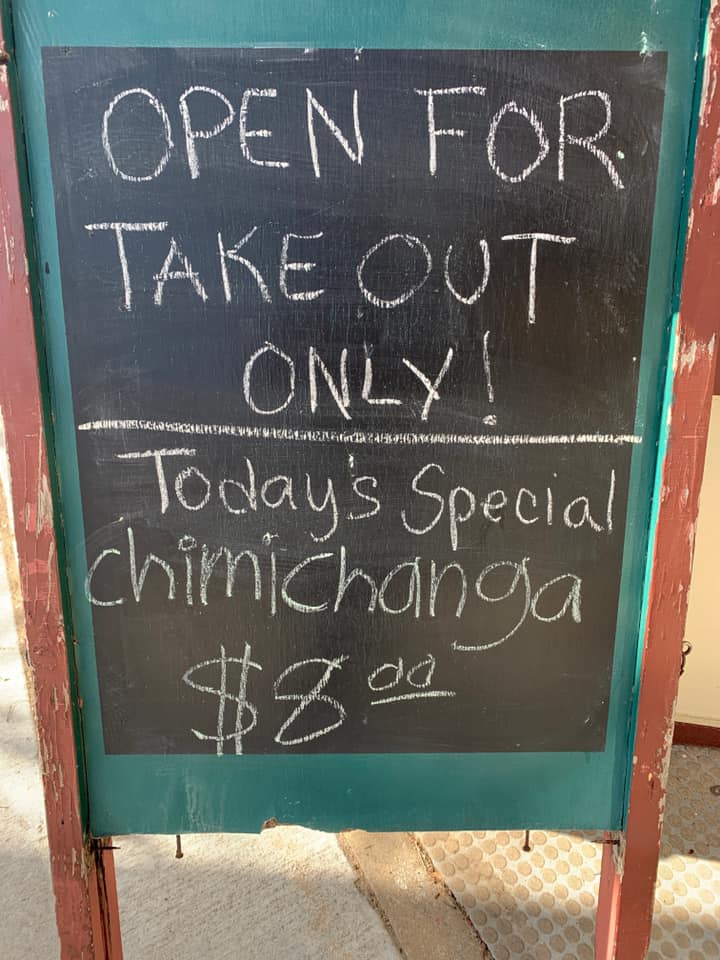 OPEN FOR
TAKE OUT
ONLY!
Today's Special
chimichanga
$8 00